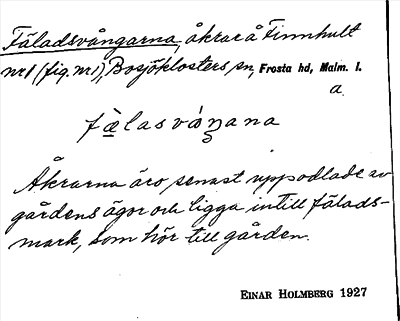 Fäladsvångarna, åkrar å Finnhult
nr 1 (fig. nr 1), Bosjöklosters sn, Frosta hd, Malm. l.
a.
fæ̀lasváŋana
Åkrarna äro senast uppodlade av
gårdens ägor och ligga intill fälads-
mark, som hör till gården.
EINAR HOLMBERG 1927